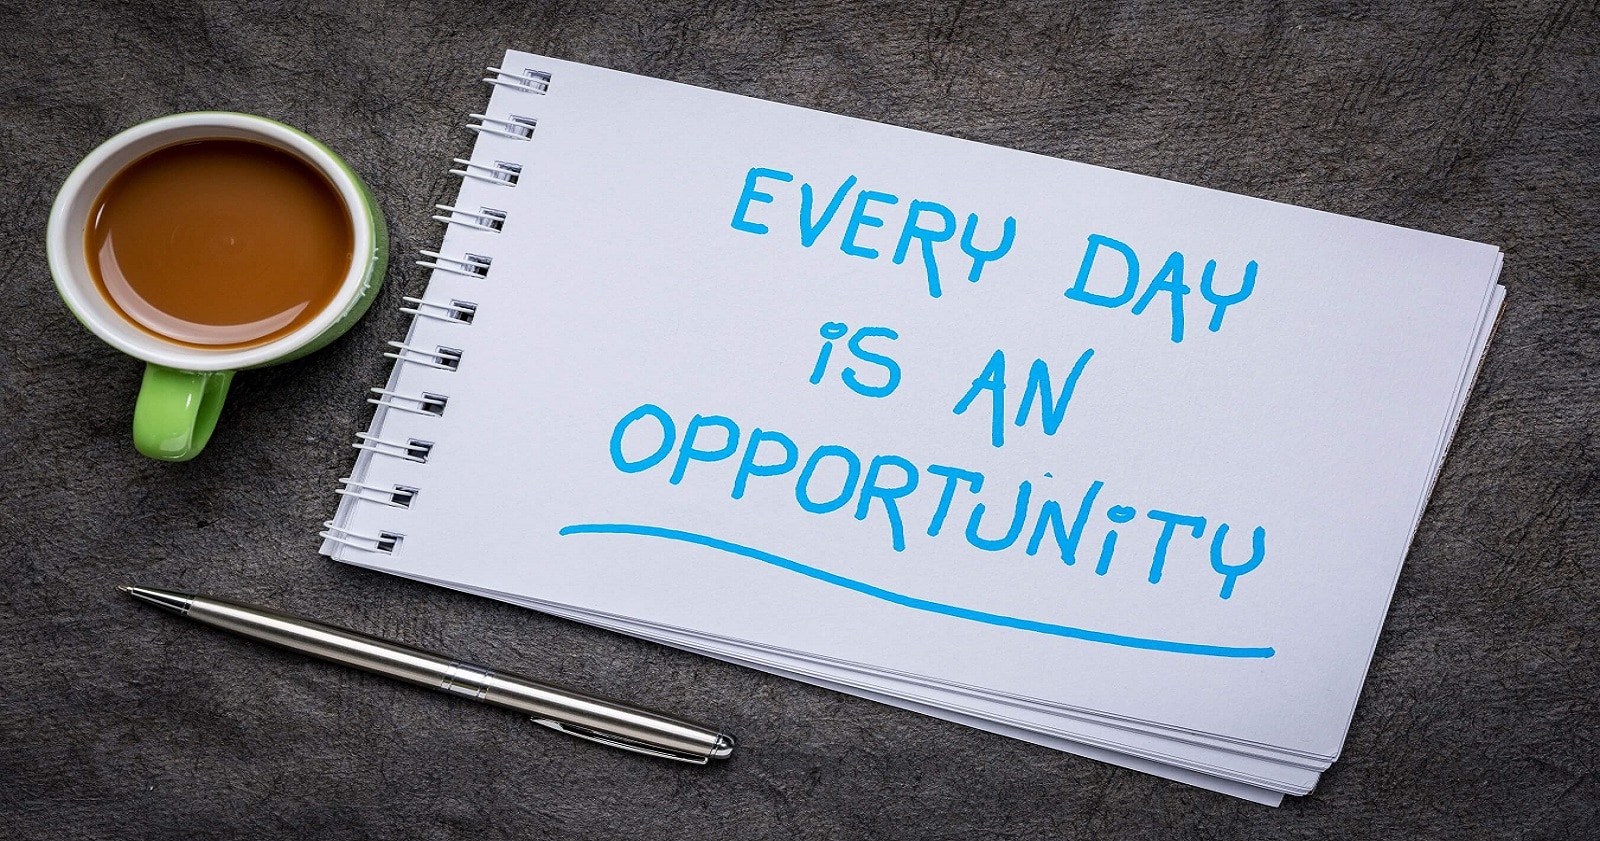 EVERY DAY
iS AN
OPPORTUNiTY